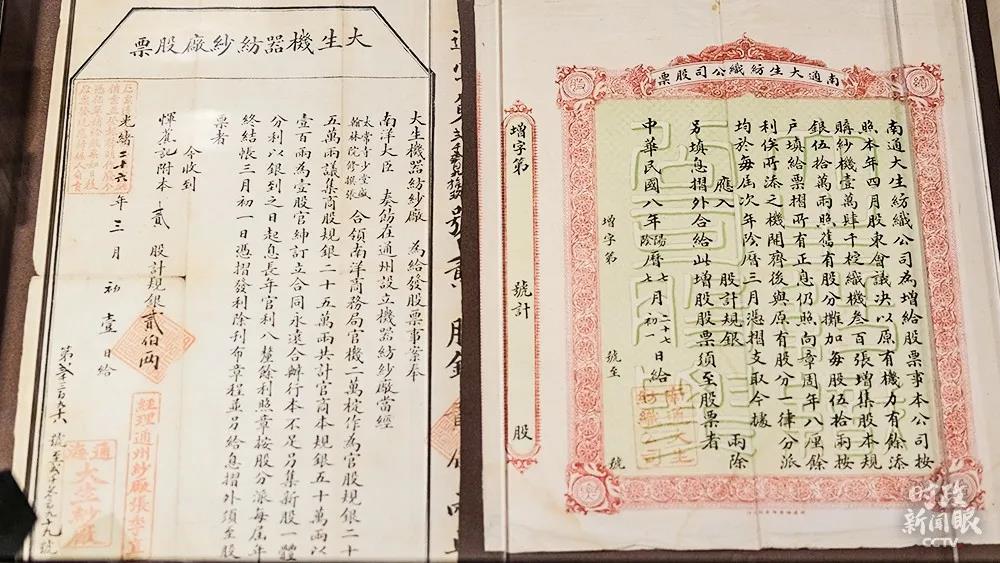 大生機器紡紗廠股票
大生機器紡紗廠 為給發股票事案奉
南洋大臣 奏飭在通州設立機器紡紗廠當經
太常寺少堂盛
翰林院修撰張
合領南洋商務局官機二萬梃作為官股規銀二十
五萬兩議集商股規銀二十五萬兩共計官商本規銀五十萬兩以
壹百兩為壹股官紳訂立合同永遠合辦行本不足另集新股一體
分利以銀到之日起息長年官利八釐餘利照章按股分派每屆年
終結帳三月初一日憑摺發利除刊布章程並另給息摺外須至股
票者
今收到
惲莞記附本 貳 股計規銀貳伯兩
光緒二十六年 三 月 初 壹 日給
經理通州紗廠張季直
通海
大生紗廠
南通大生紡織公司股票
南通大生紡織公司為增給股票事本公司按
照本年四月股東會議決以原有機力有餘添
購紗機壹萬肆千梃織機叁百張增集股本規
銀伍拾萬兩照舊有股分攤加每股伍拾兩按
戶填給票摺所有正息仍照向章周年八厘餘
利俟所添之機開齊後與原有股分一律分派
均於每屆次年陰曆三月憑摺支取今據
應入 股計規銀 兩除
另填息摺外合給此增股股票須至股票者
中華民國八年
陽
陰
曆
七
七
月
二十七
初一
日給
增字第 號至 號
南通大生
紡織公司
增字第 號計 股
时政
新闻眼
CCTV